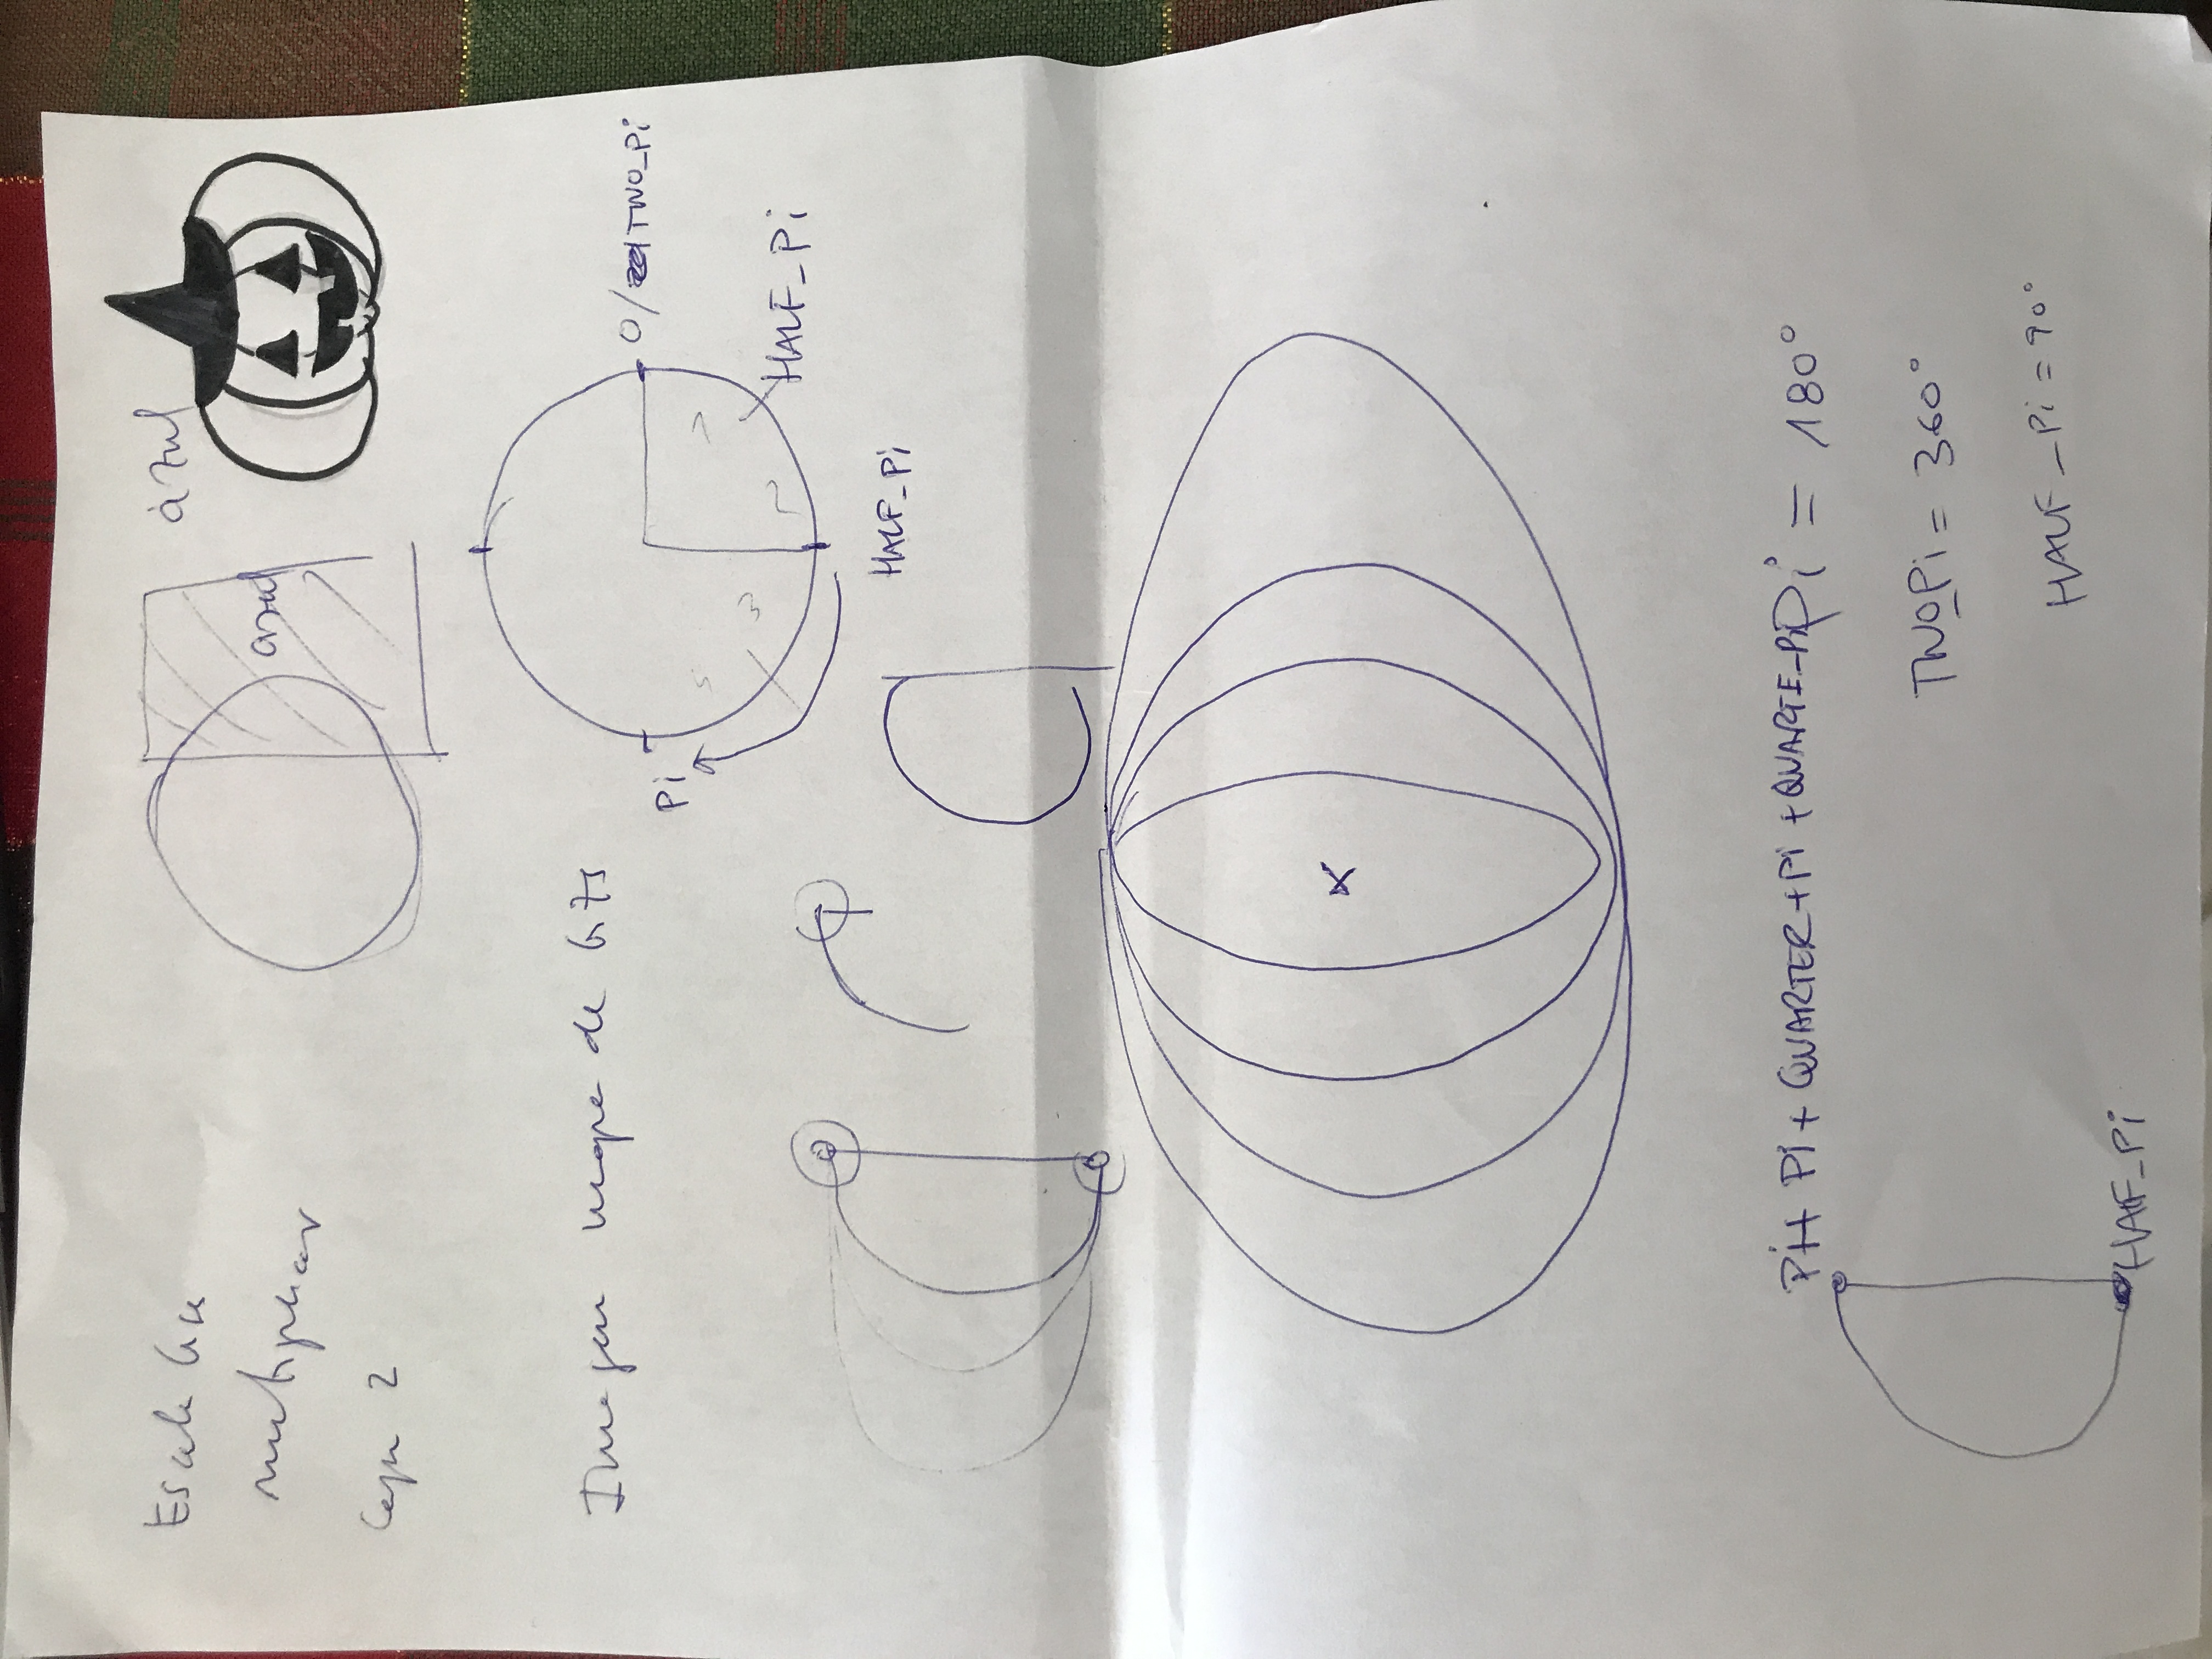 Escala
multiplicar
Capa 2
azul
azul
Imagen mapa de bits
0/TWO_Pi
Pi
HALF_Pi
HALF_Pi
Pi + QUARTER+Pi +QUARTE_Pi
Pi = 180°
TWO_Pi = 360°
HALF_Pi = 90°
HALF_Pi